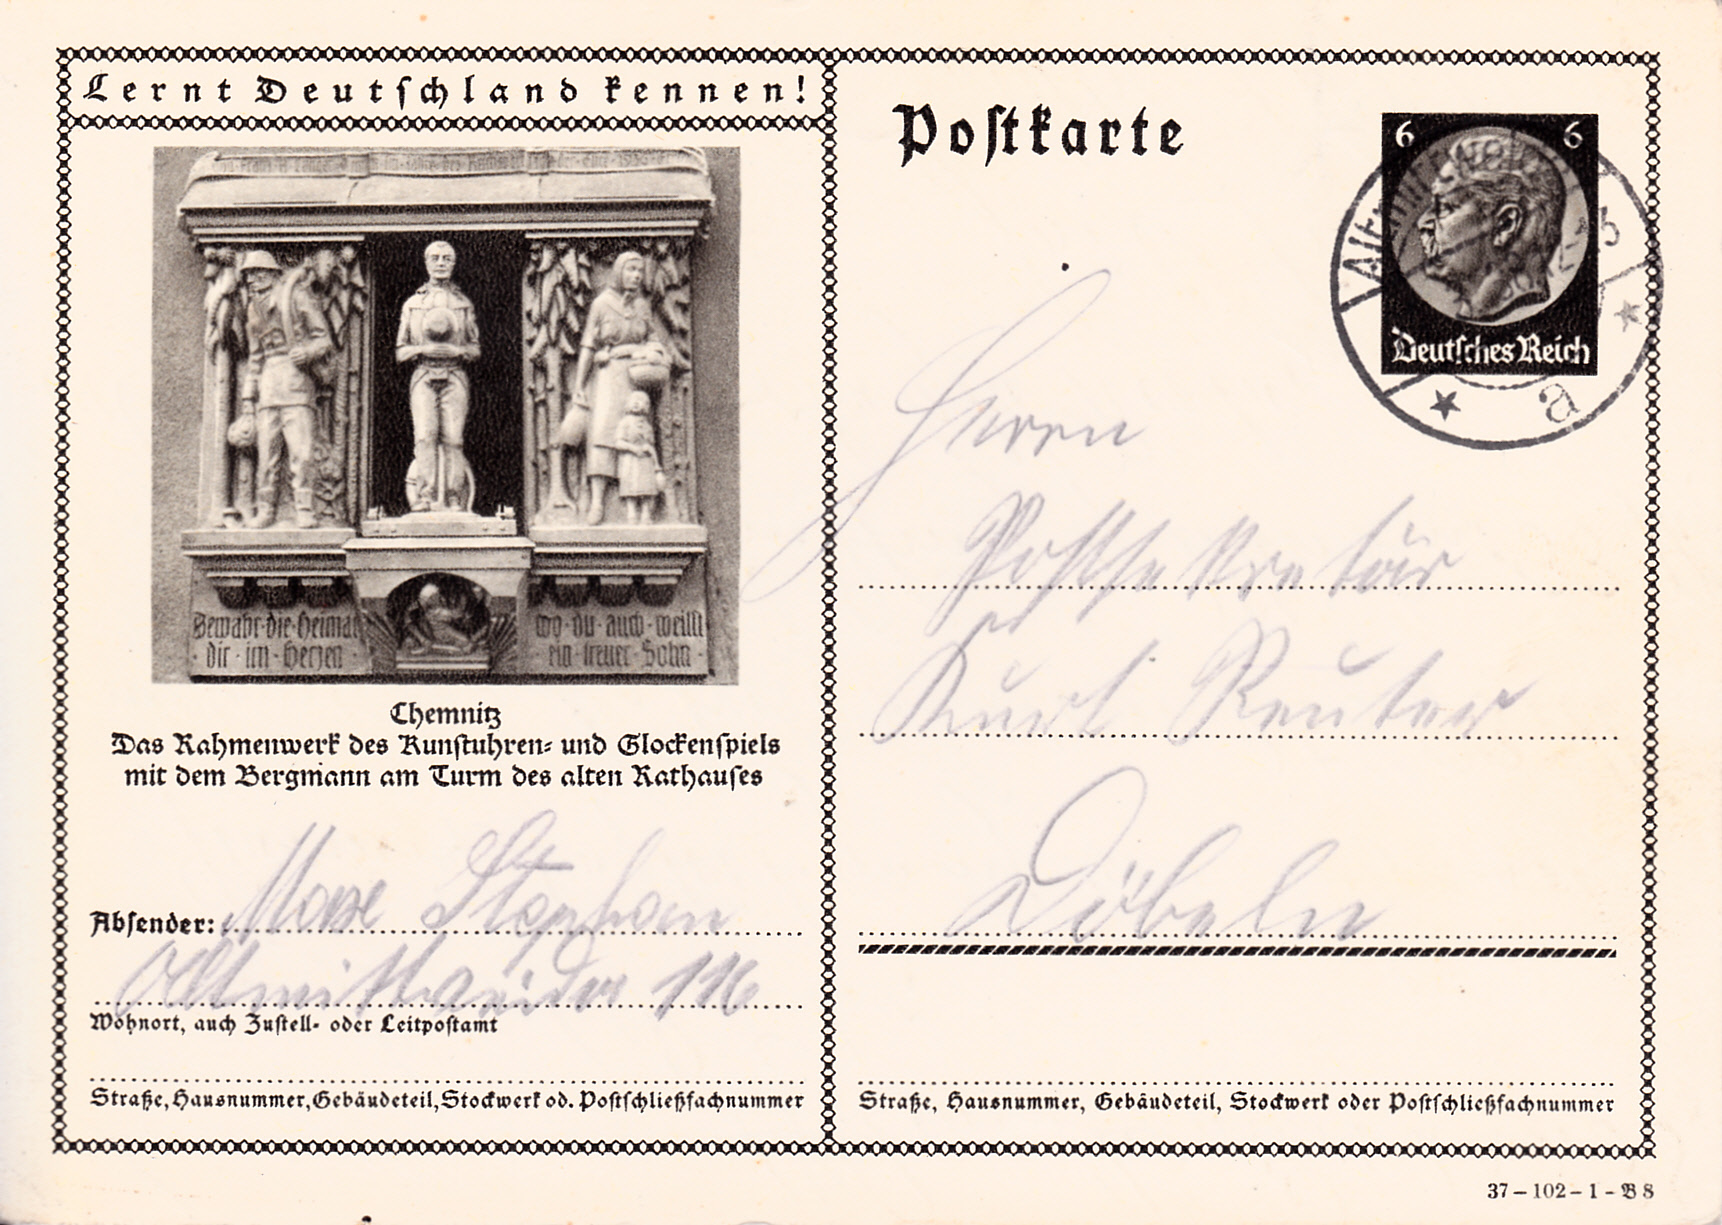 Lernt Deutschland kennen!
Bewahr·die·Heimat
·dir·im·Herzen·
wo·du·auch·weilst
·ein·treuer·Sohn·
Chemnitz
Das Rahmenwerk des Kunstuhren- und Glockenspiels
mit dem Bergmann am Turm des alten Rathauses
Absender: Max Stephan
116
Wohnort, auch Zustell- oder Leitpostamt
Straße, Hausnummer, Gebäudeteil, Stockwerk od. Postschließfachnummer
Postkarte
6 6
Deutsches Reich
a
Herrn
Postsekretär
Kurt Reuter
Döbeln
Straße, Hausnummer, Gebäudeteil, Stockwerk oder Postschließfachnummer
37 – 102 – 1 – B 8